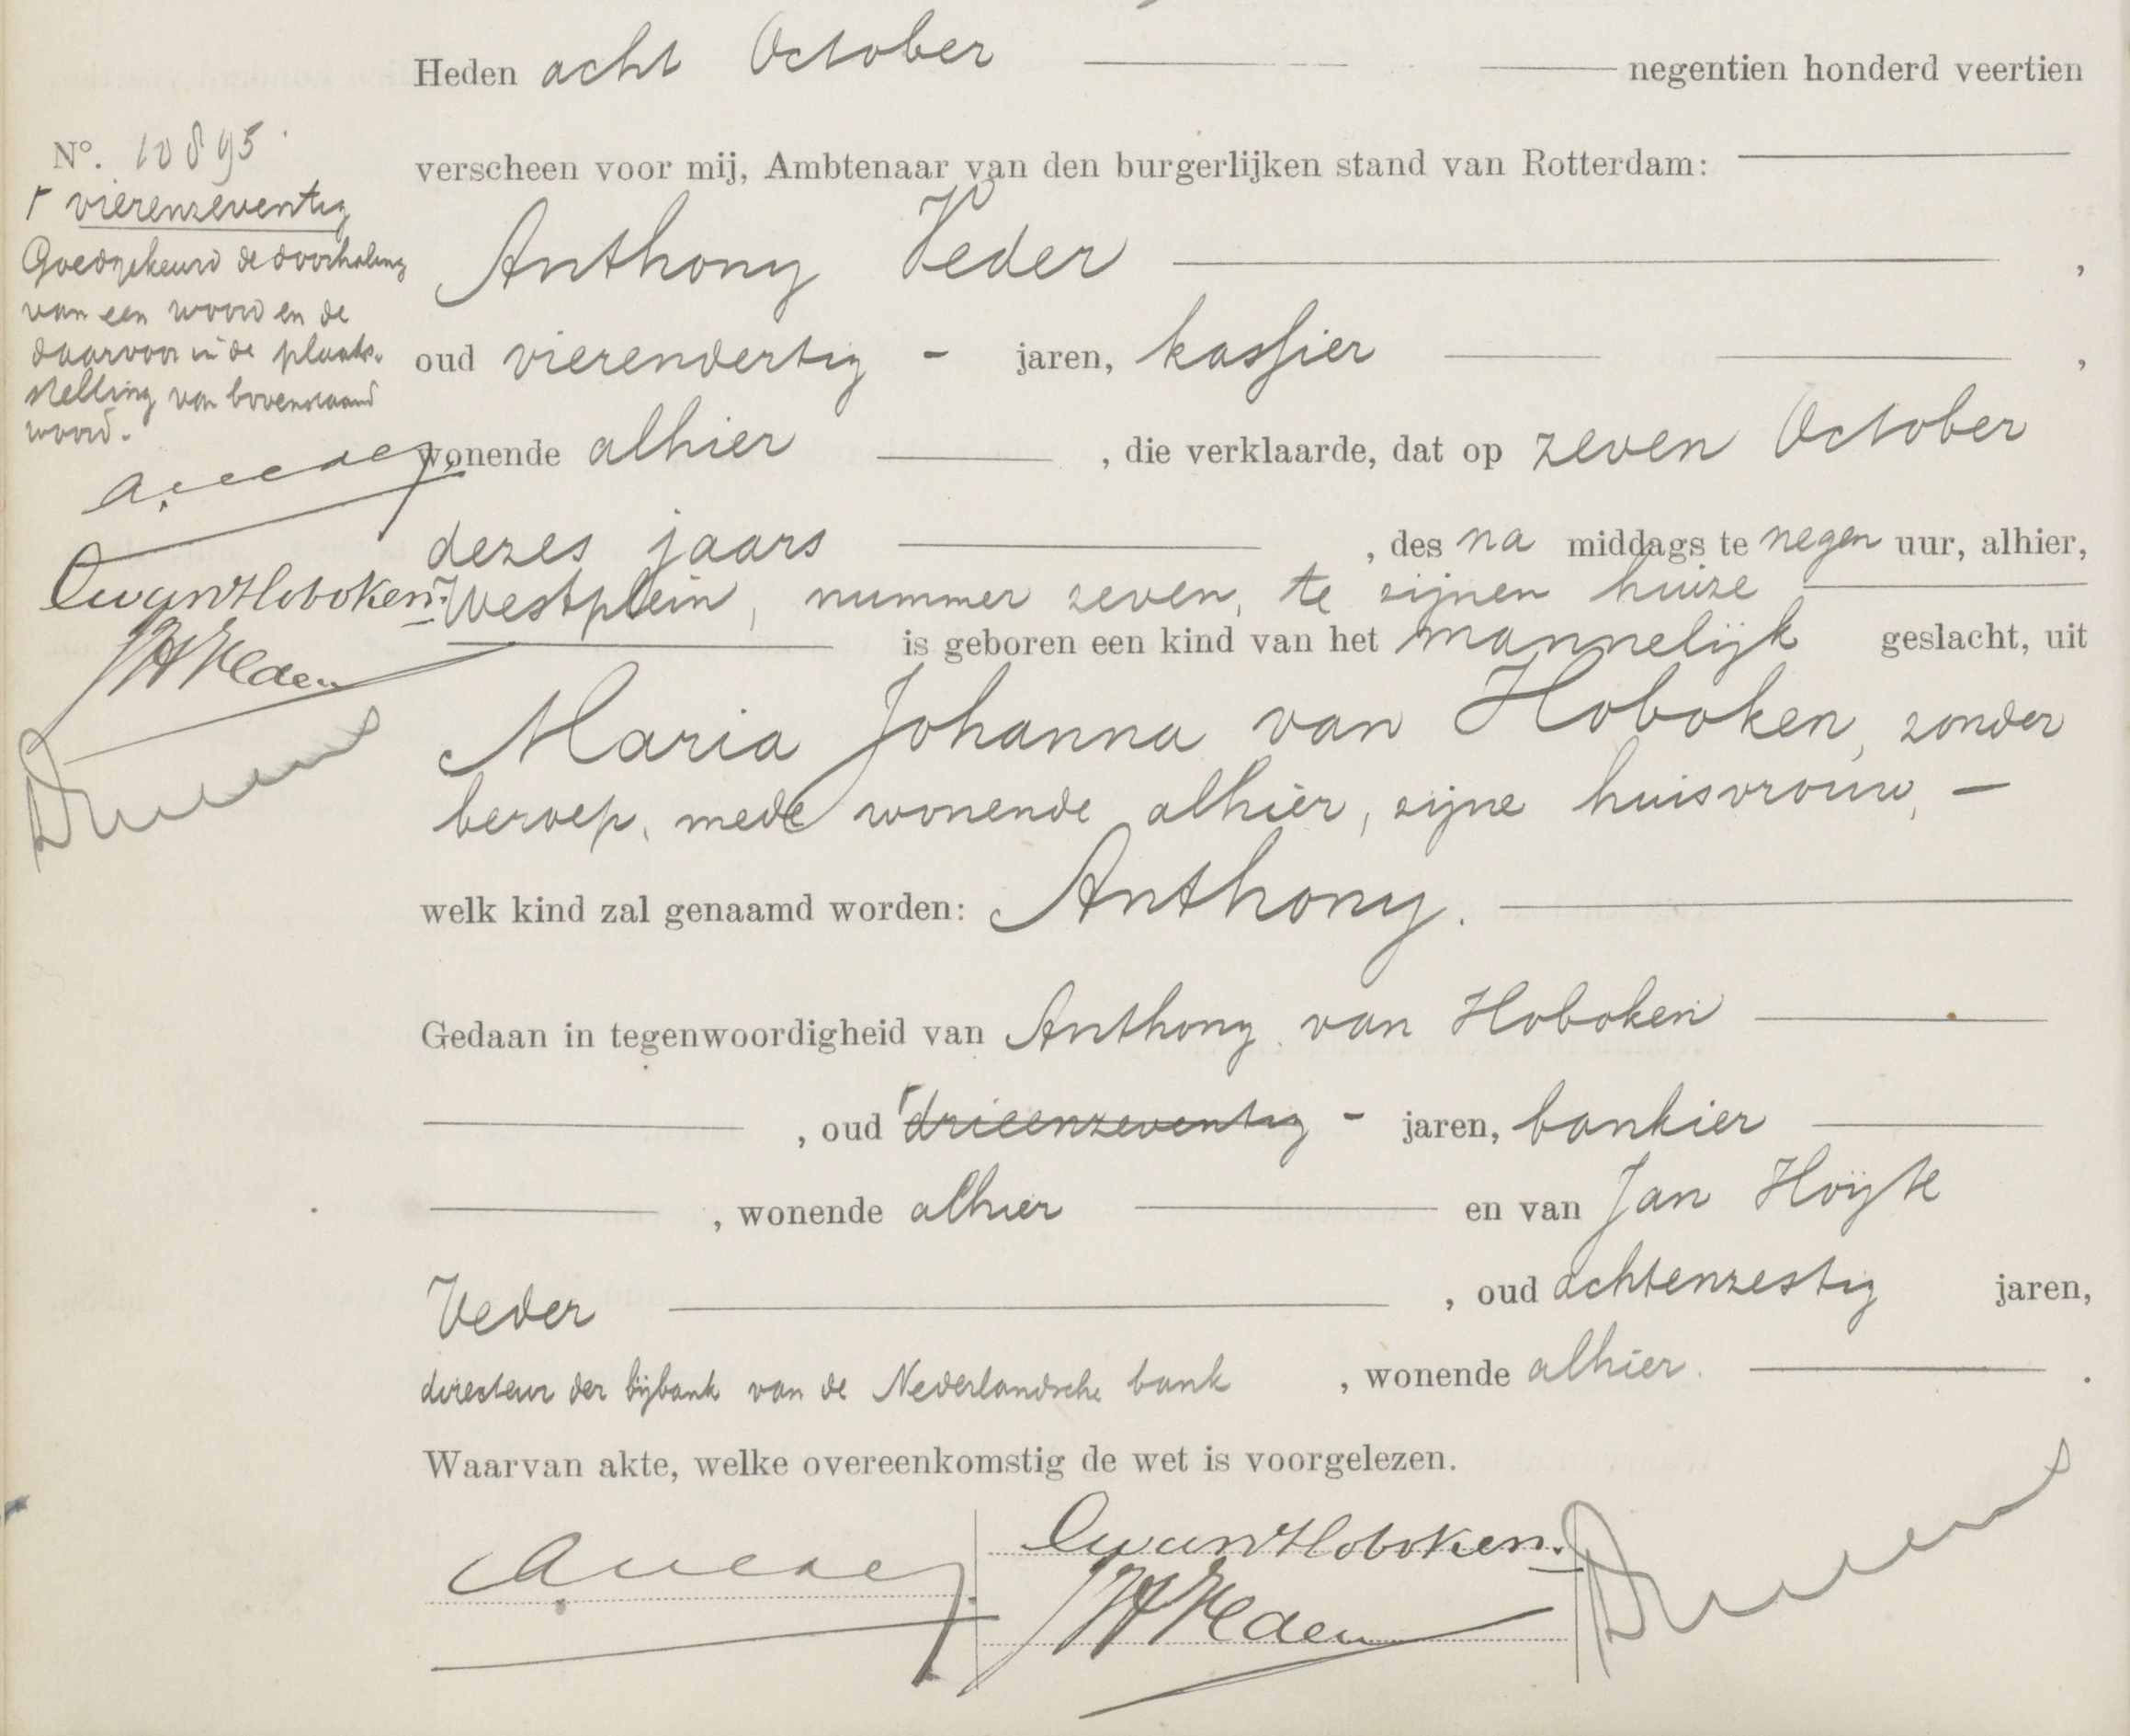 Heden acht October negentien honderd veertien
No. 10895
verscheen voor mij, Ambtenaar van den burgerlijken stand van Rotterdam:
Γ vierenzeventig
Goedgekeurd de doorhaling
van een woord en de
daarvoor in de plaats-
stelling van bovenstaand
woord.
A. Veder
CvanHoboken.
JHVeder
Anthony Veder ,
oud vierendertig - jaren, kassier ,
wonende alhier , die verklaarde, dat op zeven October
dezes jaars , des na middags te negen uur, alhier,
Westplein, nummer zeven, te zijnen huize
is geboren een kind van het mannelijk geslacht, uit
Maria Johanna van Hoboken, zonder
beroep, mede wonende alhier, zijne huisvrouw, -
welk kind zal genaamd worden: Anthony.
Gedaan in tegenwoordigheid van Anthony van Hoboken
, oud Γ drieenzeventig - jaren, bankier
, wonende alhier en van Jan Hoÿte
Veder , oud achtenzestig jaren,
directeur der bijbank van de Nederlandsche bank , wonende alhier. .
Waarvan akte, welke overeenkomstig de wet is voorgelezen.
A. Veder
CvanHoboken.
JHVeder